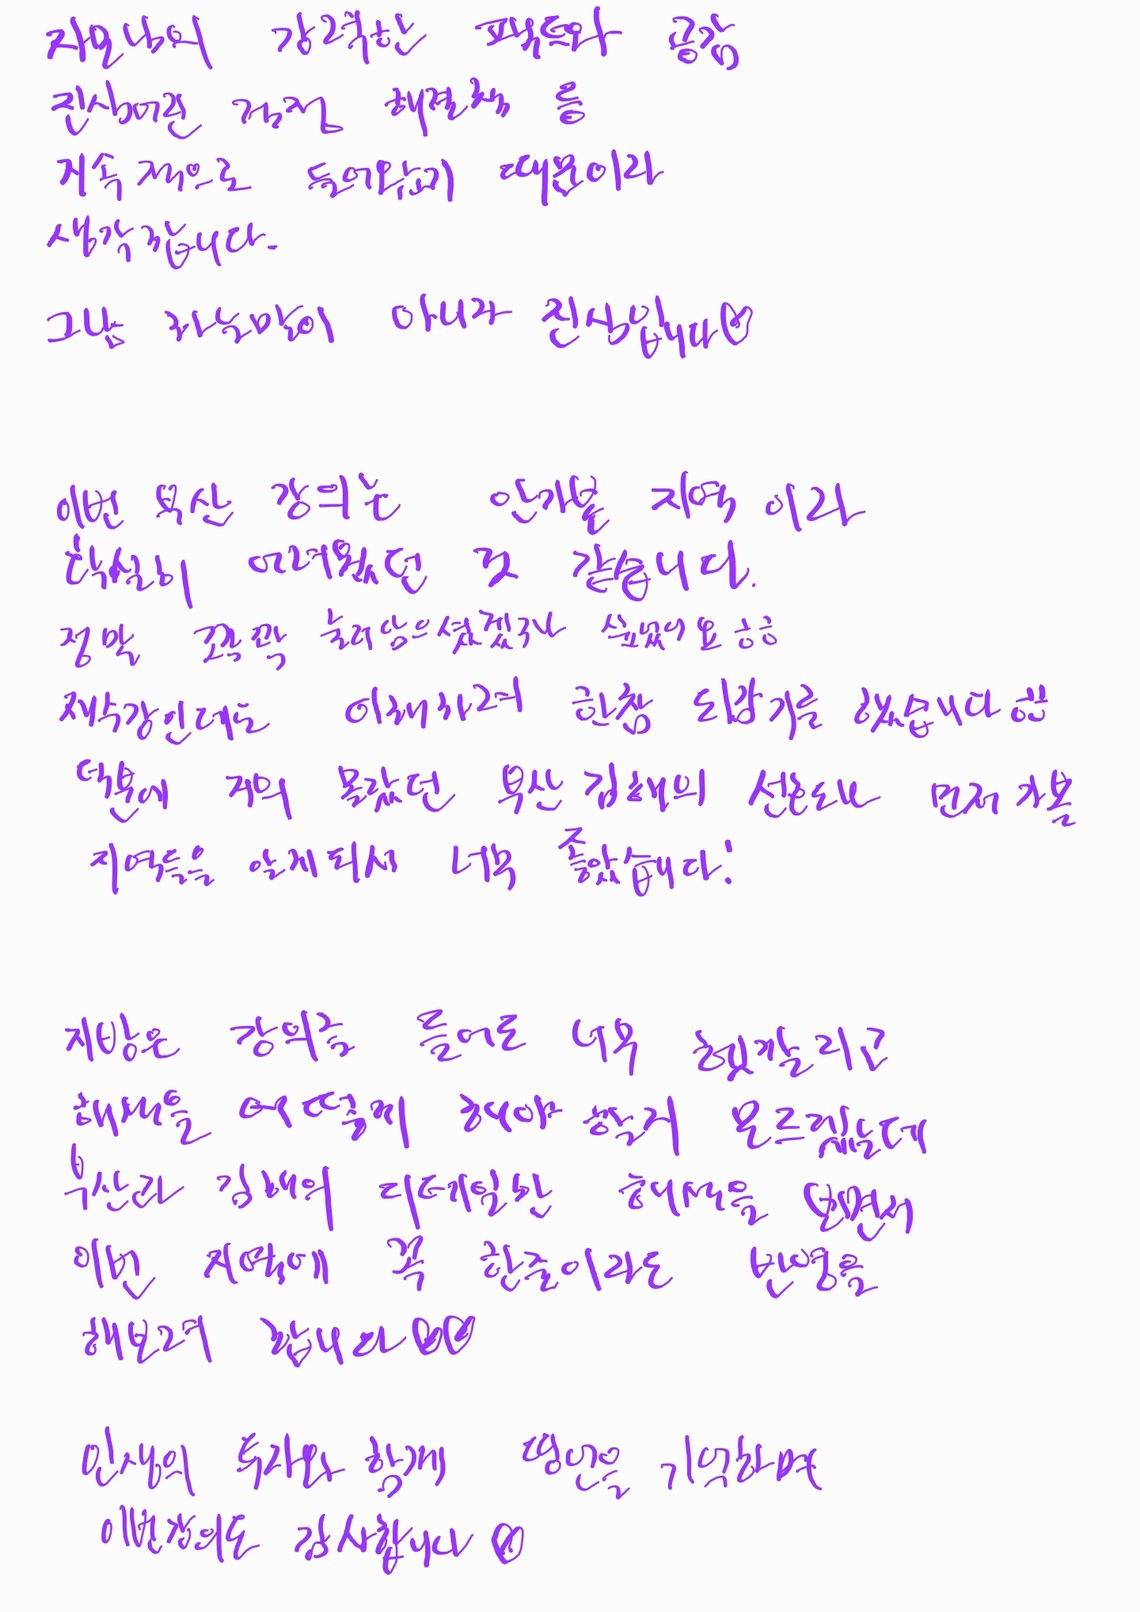 자모님의 강력한 팩트와 공감
진심어린 걱정 해결책 등
지속적으로 들어왔기 때문이라
생각합니다.
그냥 하는말이 아니라 진심입니다♡
이번 부산 강의는 안가본 지역이라
확실히 어려웠던 것 같습니다.
정말 꼭꼭 눌러담으셨겠구나 싶었어요 ㅎㅎ
재수강인데도 이해하려 한참 되감기를 했습니다ㅠㅠ
덕분에 거의 몰랐던 부산 김해의 선호도나 먼저 가볼
지역들을 알게되서 너무 좋았습니다!
지방은 강의를 들어도 너무 헷갈리고
해석을 어떻게 해야 할지 모르겠는데
부산과 김해의 디테일한 해석을 보면서
이번 지역에 꼭 한줄이라도 반영을
해보려 합니다♡♡
인생의 투자와 함께 명언을 기억하며
이번강의도 감사합니다♡